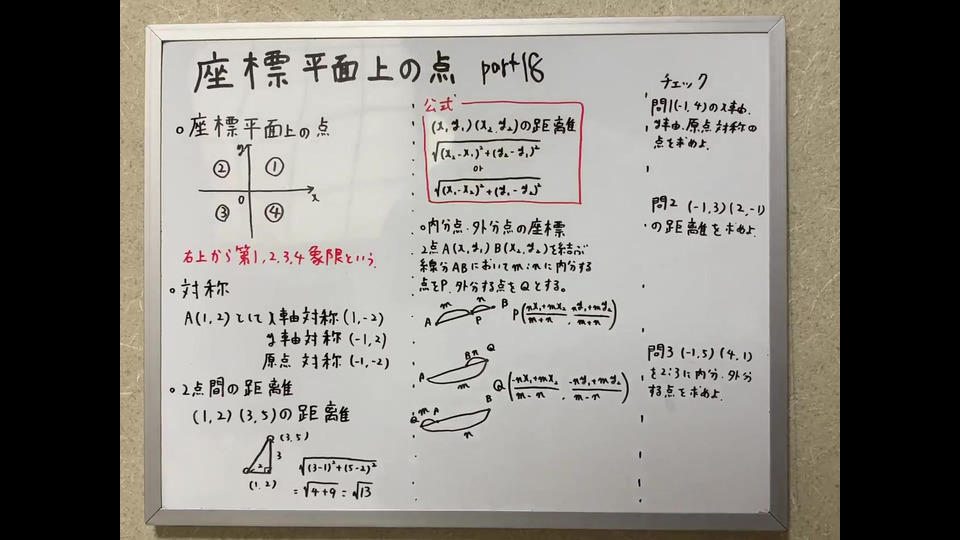 座標平面上の点 part18
○座標平面上の点
y
② ①
0
x
③ ④
右上から第1,2,3,4象限という.
○対称
A(1,2)としてx軸対称(1,-2)
y軸対称(-1,2)
原点対称(-1,-2)
○2点間の距離
(1,2)(3,5)の距離
(3,5)
3
2
(1,2)
√(3-1)²+(5-2)²
=√4+9=√13
公式
(x₁y₁)(x₂,y₂)の距離
√(x₂-x₁)²+(y₂-y₁)²
or
√(x₁-x₂)²+(y₁-y₂)²
○内分点.外分点の座標
2点A(x₁y₁)B(x₂,y₂)を結ぶ
線分ABにおいてm:nに内分する
点をP.外分する点をQとする。
m n
A P B
P(nx₁+mx₂/m+n , ny₁+my₂/m+n)
B n Q
A m
Q(-nx₁+mx₂/m-n , -ny₁+my₂/m-n)
m A B
Q n
チェック
問1(-1,4)のx軸.
y軸.原点対称の
点を求めよ.
問2 (-1,3)(2,-1)
の距離を求めよ.
問3(-1,5)(4,1)
を2:3に内分.外分
する点を求めよ.